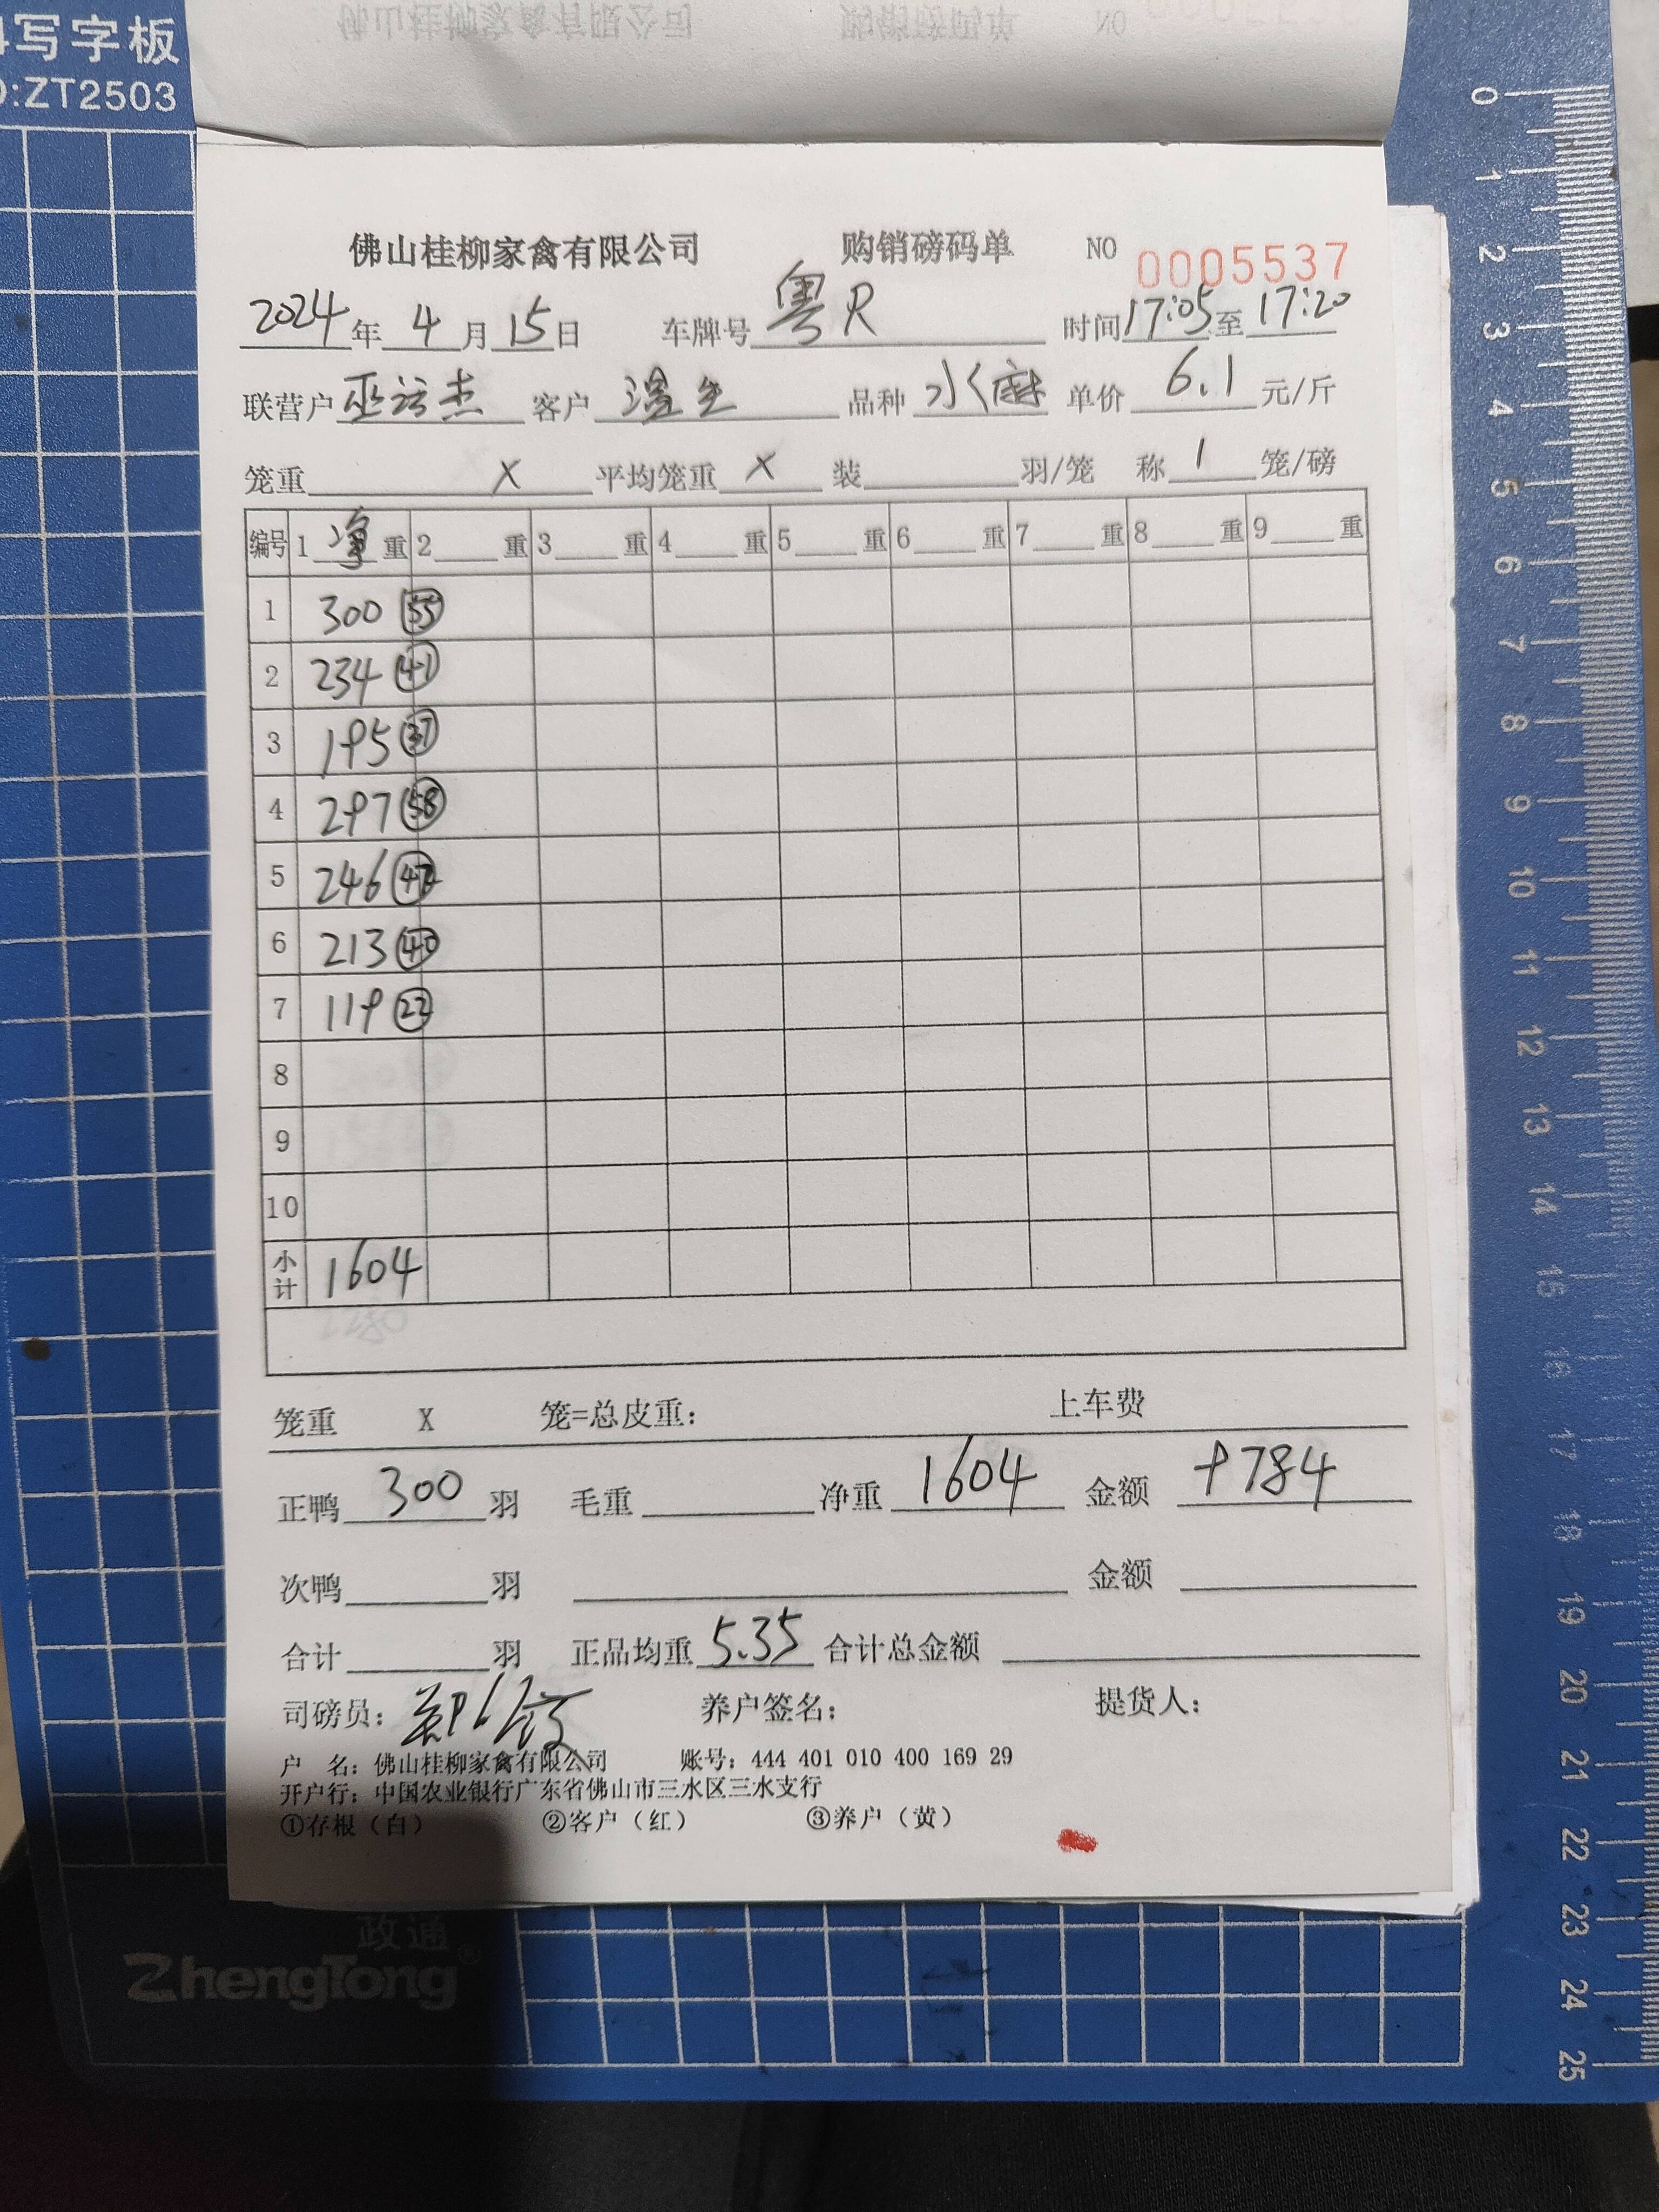 写字板
ZT2503
佛山桂柳家禽有限公司 购销磅码单 NO 0005537
2024年4月15日 车牌号 粤R 时间 17:05 至 17:20
联营户 巫运杰 客户 温生 品种 水麻 单价 6.1 元/斤
笼重 X 平均笼重 X 装 羽/笼 称 1 笼/磅
编号 1 净 重 2 重 3 重 4 重 5 重 6 重 7 重 8 重 9 重
1 300 55
2 234 41
3 195 37
4 297 58
5 246 47
6 213 40
7 119 22
8
9
10
小计 1604
笼重 X 笼=总皮重： 上车费
正鸭 300 羽 毛重 净重 1604 金额 9784
次鸭 羽 金额
合计 羽 正品均重 5.35 合计总金额
司磅员： 养户签名： 提货人：
户 名：佛山桂柳家禽有限公司 账号：444 401 010 400 169 29
开户行：中国农业银行广东省佛山市三水区三水支行
①存根（白） ②客户（红） ③养户（黄）
政通®
ZhengTong
0
1
2
3
4
5
6
7
8
9
10
11
12
13
14
15
16
17
18
19
20
21
22
23
24
25